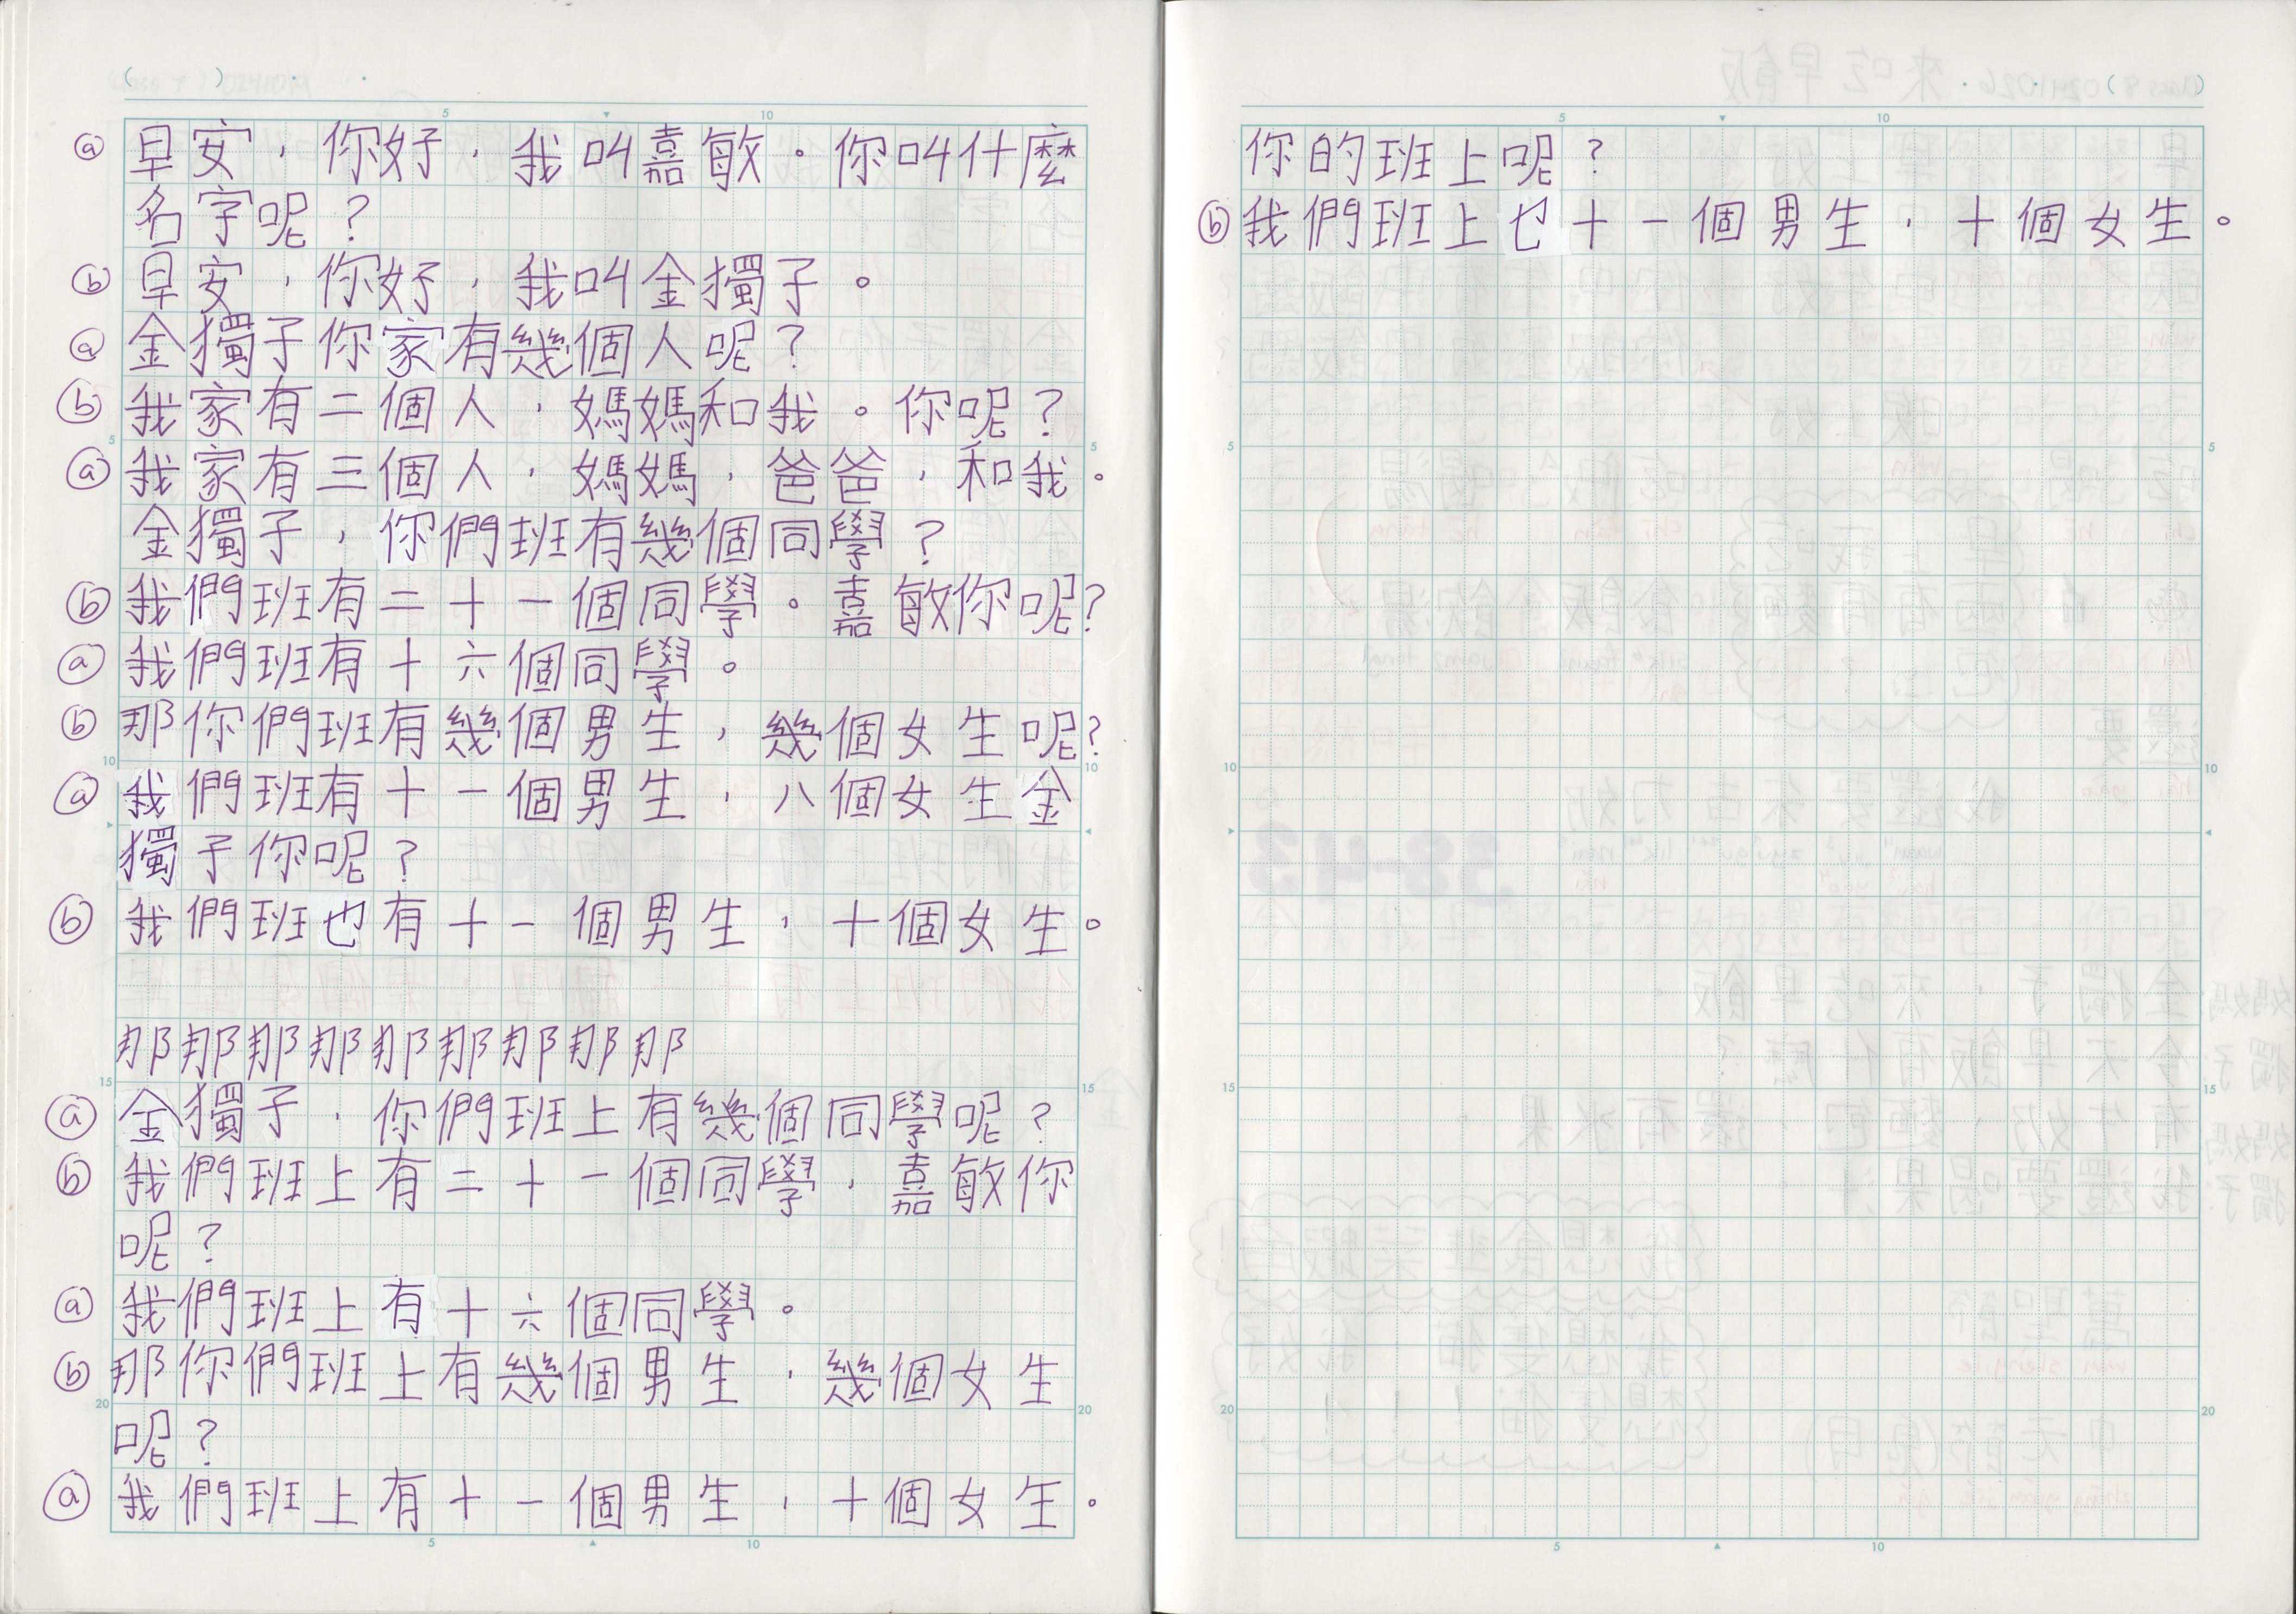 ⓐ 早安，你好，我叫嘉敏。你叫什麼
名字呢？
ⓑ 早安，你好，我叫金獨子。
ⓐ 金獨子你家有幾個人呢？
ⓑ 我家有二個人，媽媽和我。你呢？
ⓐ 我家有三個人，媽媽，爸爸，和我。
金獨子，你們班有幾個同學？
ⓑ 我們班有二十一個同學。嘉敏你呢？
ⓐ 我們班有十六個同學。
ⓑ 那你們班有幾個男生，幾個女生呢？
ⓐ 我們班有十一個男生，八個女生金
獨子你呢？
ⓑ 我們班也有十一個男生，十個女生。
那那那那那那那那那
ⓐ 金獨子，你們班上有幾個同學呢？
ⓑ 我們班上有二十一個同學，嘉敏你
呢？
ⓐ 我們班上有十六個同學。
ⓑ 那你們班上有幾個男生，幾個女生
呢？
ⓐ 我們班上有十一個男生，十個女生。
你的班上呢？
ⓑ 我們班上也十一個男生，十個女生。